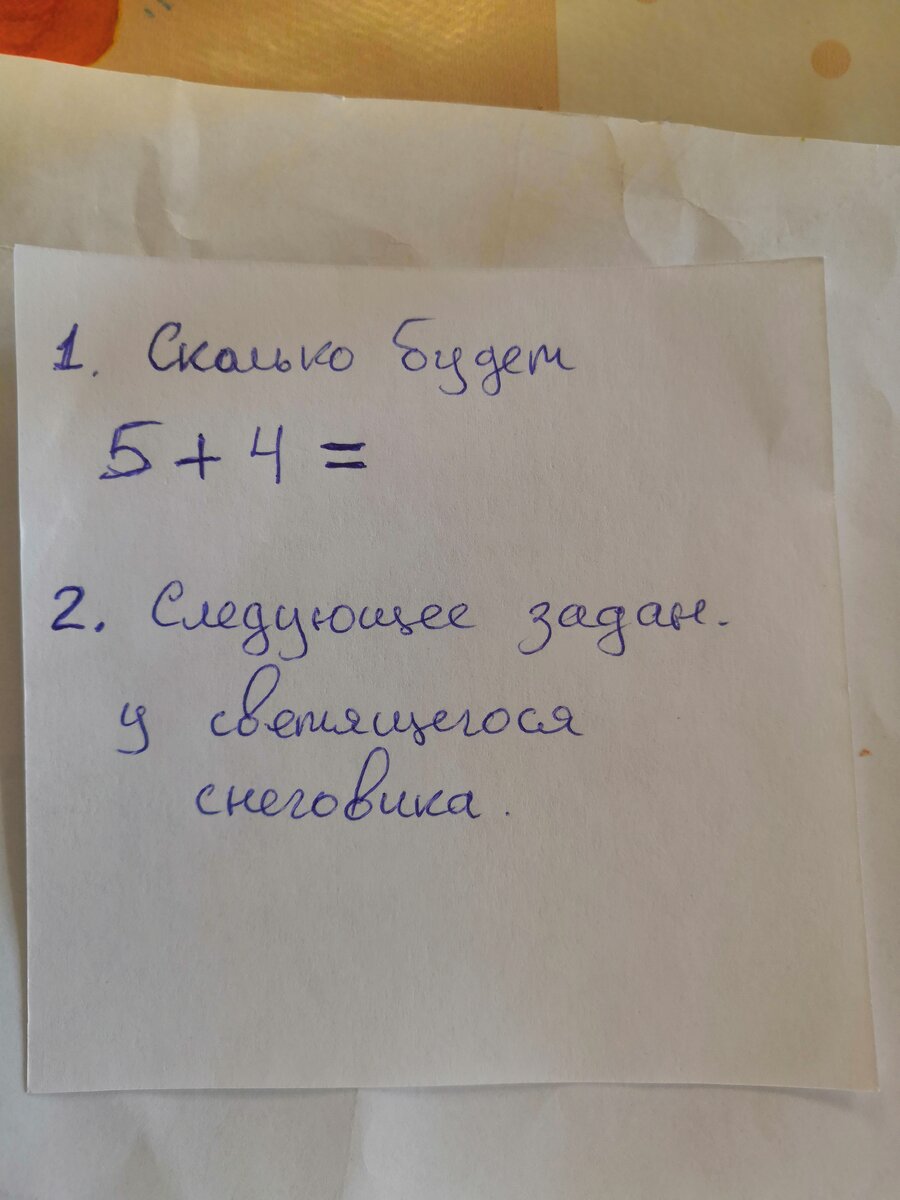 1. Сколько будет
5 + 4 =
2. Следующее задан.
у светящегося
снеговика.